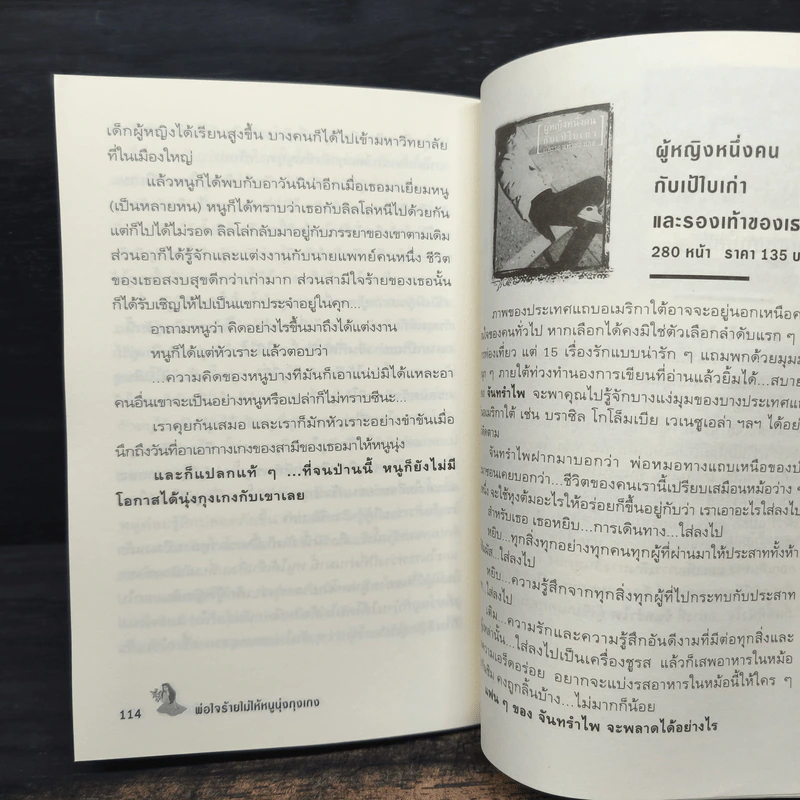 เด็กผู้หญิงได้เรียนสูงขึ้น บางคนก็ได้ไปเข้ามหาวิทยาลัย
ที่ในเมืองใหญ่
แล้วหนูก็ได้พบกับอาวันนิน่าอีกเมื่อเธอมาเยี่ยมหนู
(เป็นหลายหน) หนูก็ได้ทราบว่าเธอกับลิลโล่หนีไปด้วยกัน
แต่ก็ไปได้ไม่รอด ลิลโล่กลับมาอยู่กับภรรยาของเขาตามเดิม
ส่วนอาก็ได้รู้จักและแต่งงานกับนายแพทย์คนหนึ่ง ชีวิต
ของเธอสงบสุขดีกว่าเก่ามาก ส่วนสามีใจร้ายของเธอนั้น
ก็ได้รับเชิญให้ไปเป็นแขกประจำอยู่ในคุก...
อาถามหนูว่า คิดอย่างไรขึ้นมาถึงได้แต่งงาน
หนูก็ได้แต่หัวเราะ แล้วตอบว่า
...ความคิดของหนูบางทีมันก็เอาแน่ปมิได้แหละอา
คนอื่นเขาจะเป็นอย่างหนูหรือเปล่าก็ไม่ทราบซีนะ...
เราคุยกันเสมอ และเราก็มักหัวเราะอย่างขำขันเมื่อ
นึกถึงวันที่อาเอากางเกงของสามีของเธอมาให้หนูนุ่ง
และก็แปลกแท้ ๆ ...ที่จนป่านนี้ หนูก็ยังไม่มี
โอกาสได้นุ่งกุงเกงกับเขาเลย
114 พ่อใจร้ายไม่ให้หนูนุ่งกุงเกง
ผู้หญิงหนึ่งคน
กับเป้ใบเก่า
ผู้หญิงหนึ่งคน
กับเป้ใบเก่า
และรองเท้าของเธ
280 หน้า ราคา 135 บ
ภาพของประเทศแถบอเมริกาใต้อาจจะอยู่นอกเหนือค
ของคนทั่วไป หากเลือกได้คงมิใช่ตัวเลือกลำดับแรก ๆ
ท่องเที่ยว แต่ 15 เรื่องรักแบบน่ารัก ๆ แถมพกด้วยมุมม
ๆ ภายใต้ท่วงทำนองการเขียนที่อ่านแล้วยิ้มได้...สบาย
จันทรำไพ จะพาคุณไปรู้จักบางแง่มุมของบางประเทศแ
อเมริกาใต้ เช่น บราซิล โกโล็มเบีย เวเนซูเอล่า ฯลฯ ได้อย่
ติดตาม
จันทรำไพฝากมาบอกว่า พ่อหมอทางแถบเหนือของป
เคยบอกว่า...ชีวิตของคนเรานี้เปรียบเสมือนหม้อว่าง ๆ
จะใช้หุงต้มอะไรให้อร่อยก็ขึ้นอยู่กับว่า เราเอาอะไรใส่ลงไป
สำหรับเธอ เธอหยิบ...การเดินทาง...ใส่ลงไป
หยิบ...ทุกสิ่งทุกอย่างทุกคนทุกผู้ที่ผ่านมาให้ประสาททั้งห้า
...ใส่ลงไป
หยิบ...ความรู้สึกจากทุกสิ่งทุกผู้ที่ไปกระทบกับประสาท
ใส่ลงไป
เติม...ความรักและความรู้สึกอันดีงามที่มีต่อทุกสิ่งและ
เหล่านั้น...ใส่ลงไปเป็นเครื่องชูรส แล้วก็เสพอาหารในหม้อ
ความเอร็ดอร่อย อยากจะแบ่งรสอาหารในหม้อนี้ให้ใคร ๆ
คงถูกลิ้นบ้าง...ไม่มากก็น้อย
แฟน ๆ ของ จันทรำไพ จะพลาดได้อย่างไร